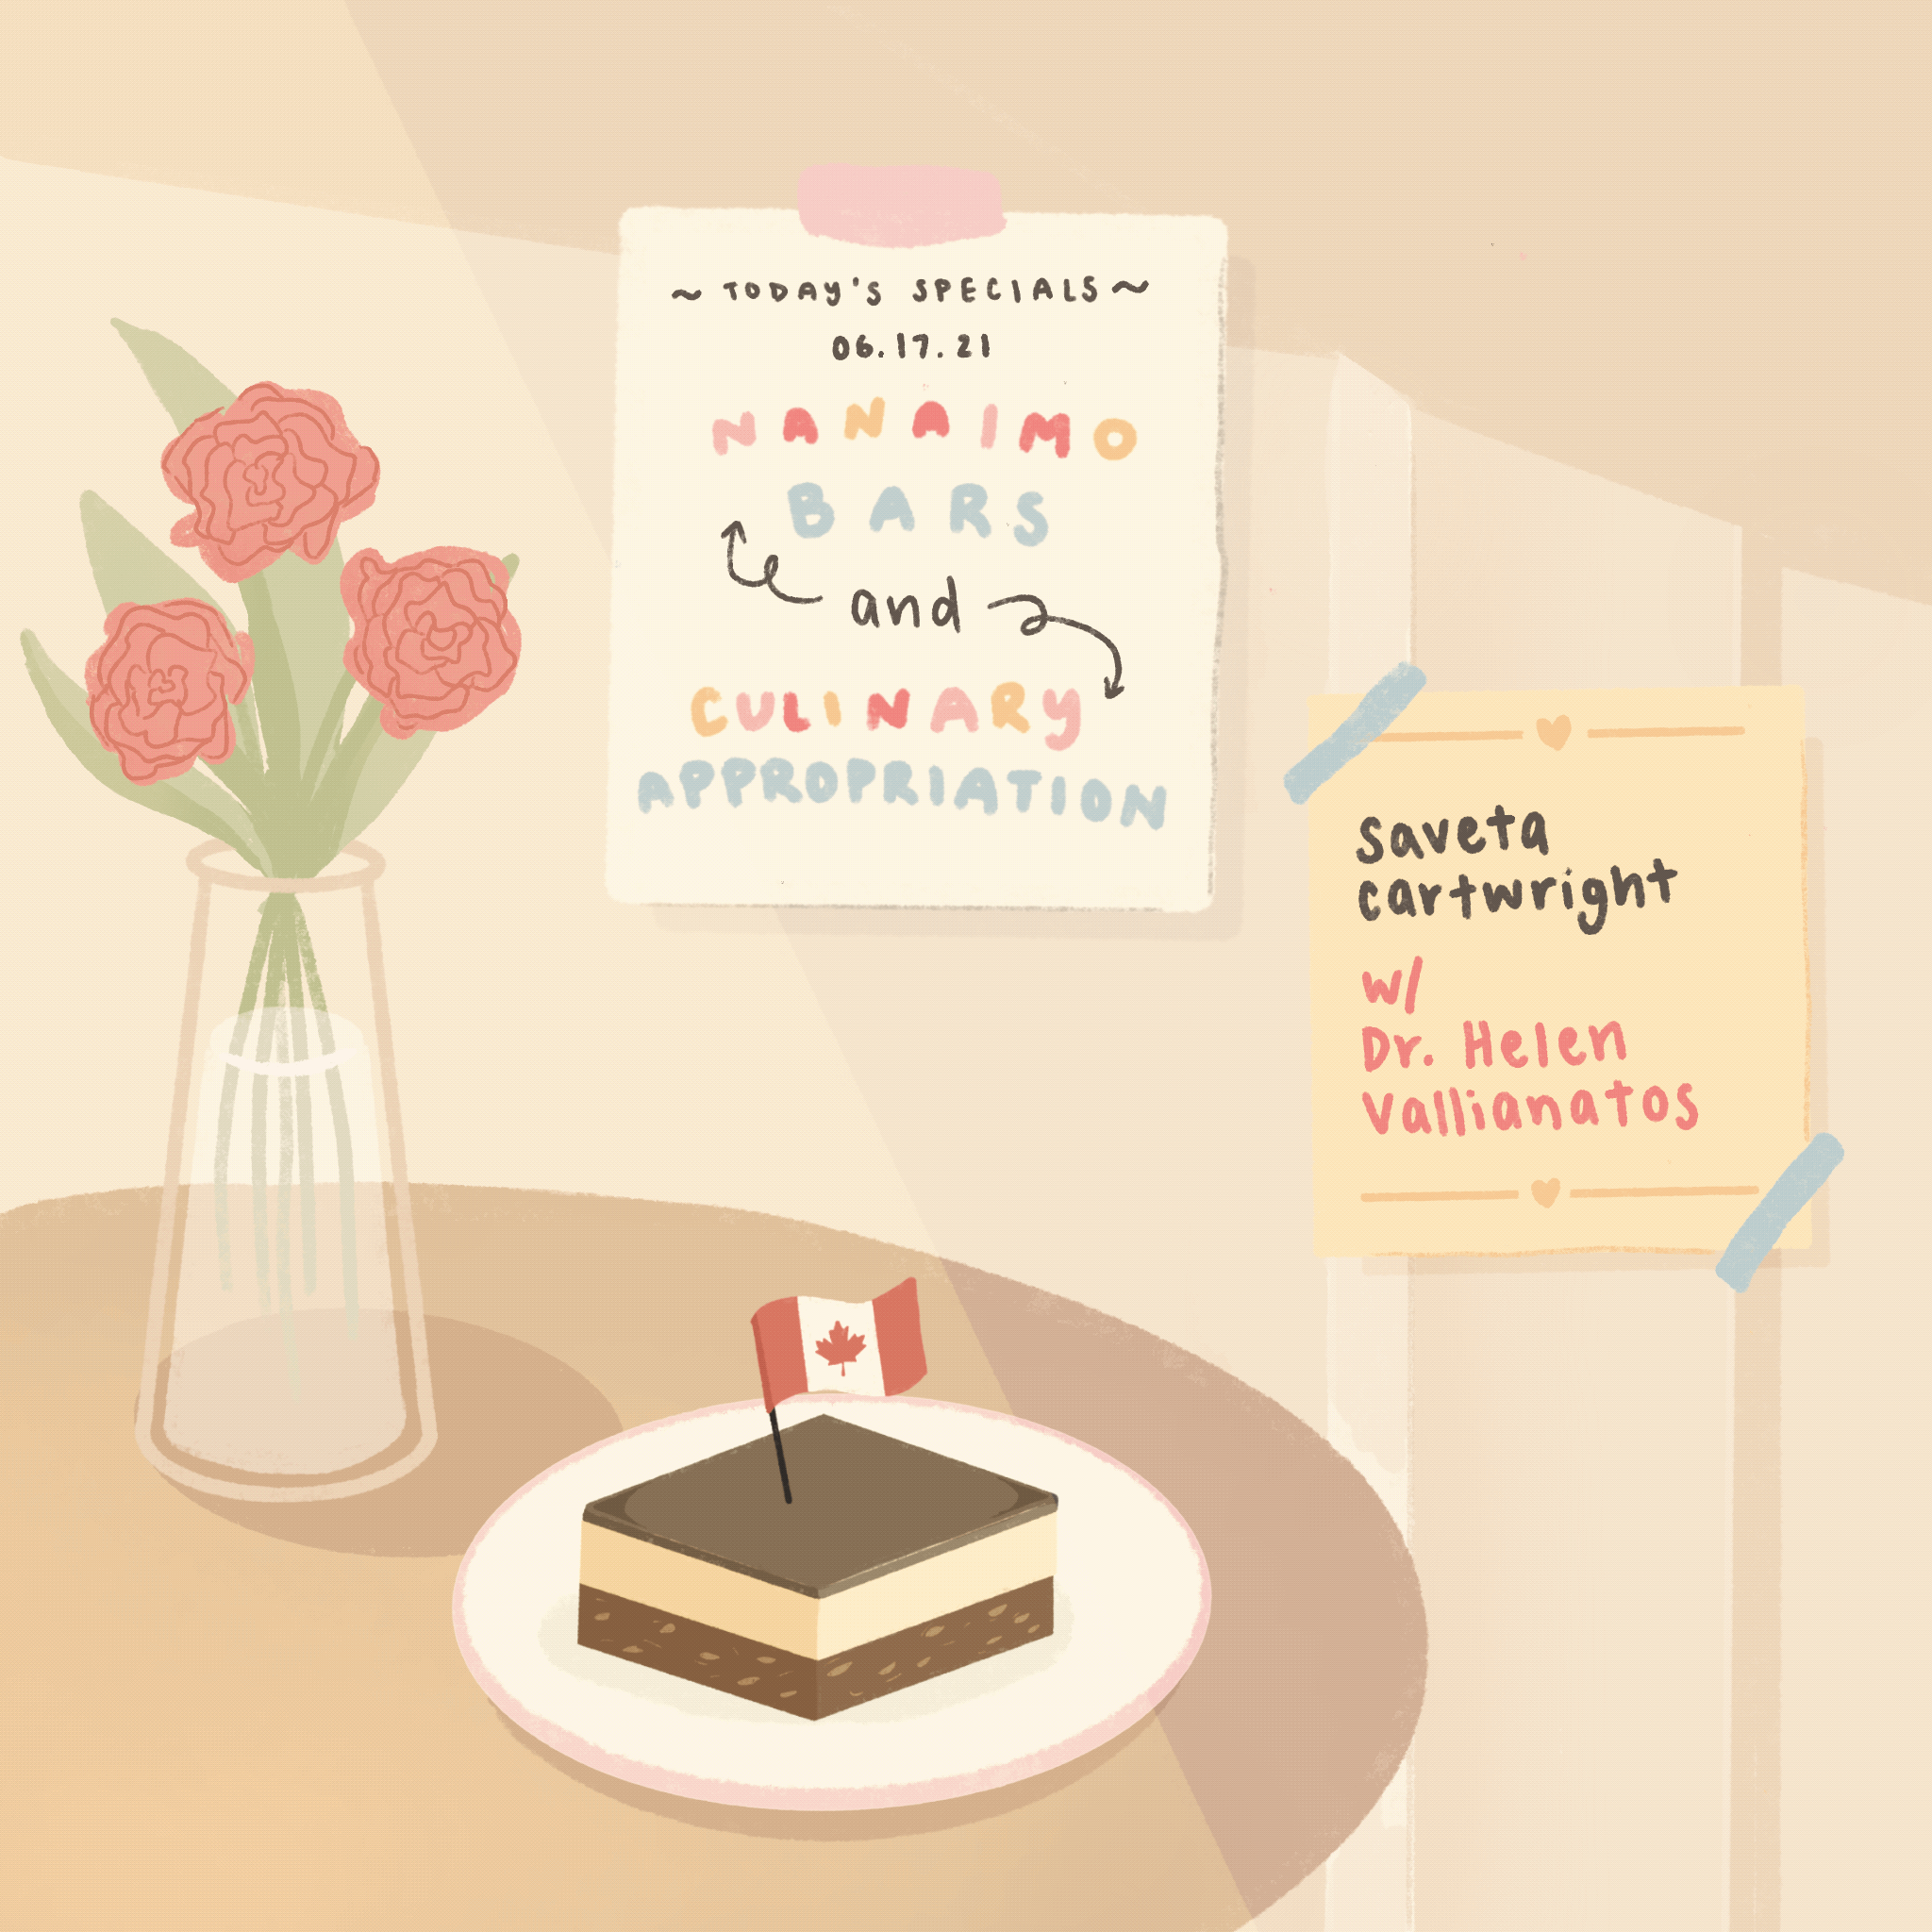 ~ TODAY'S SPECIALS ~
06.17.21
NANAIMO
BARS
and
CULINARY
APPROPRIATION
saveta
cartwright
w/
Dr. Helen
Vallianatos